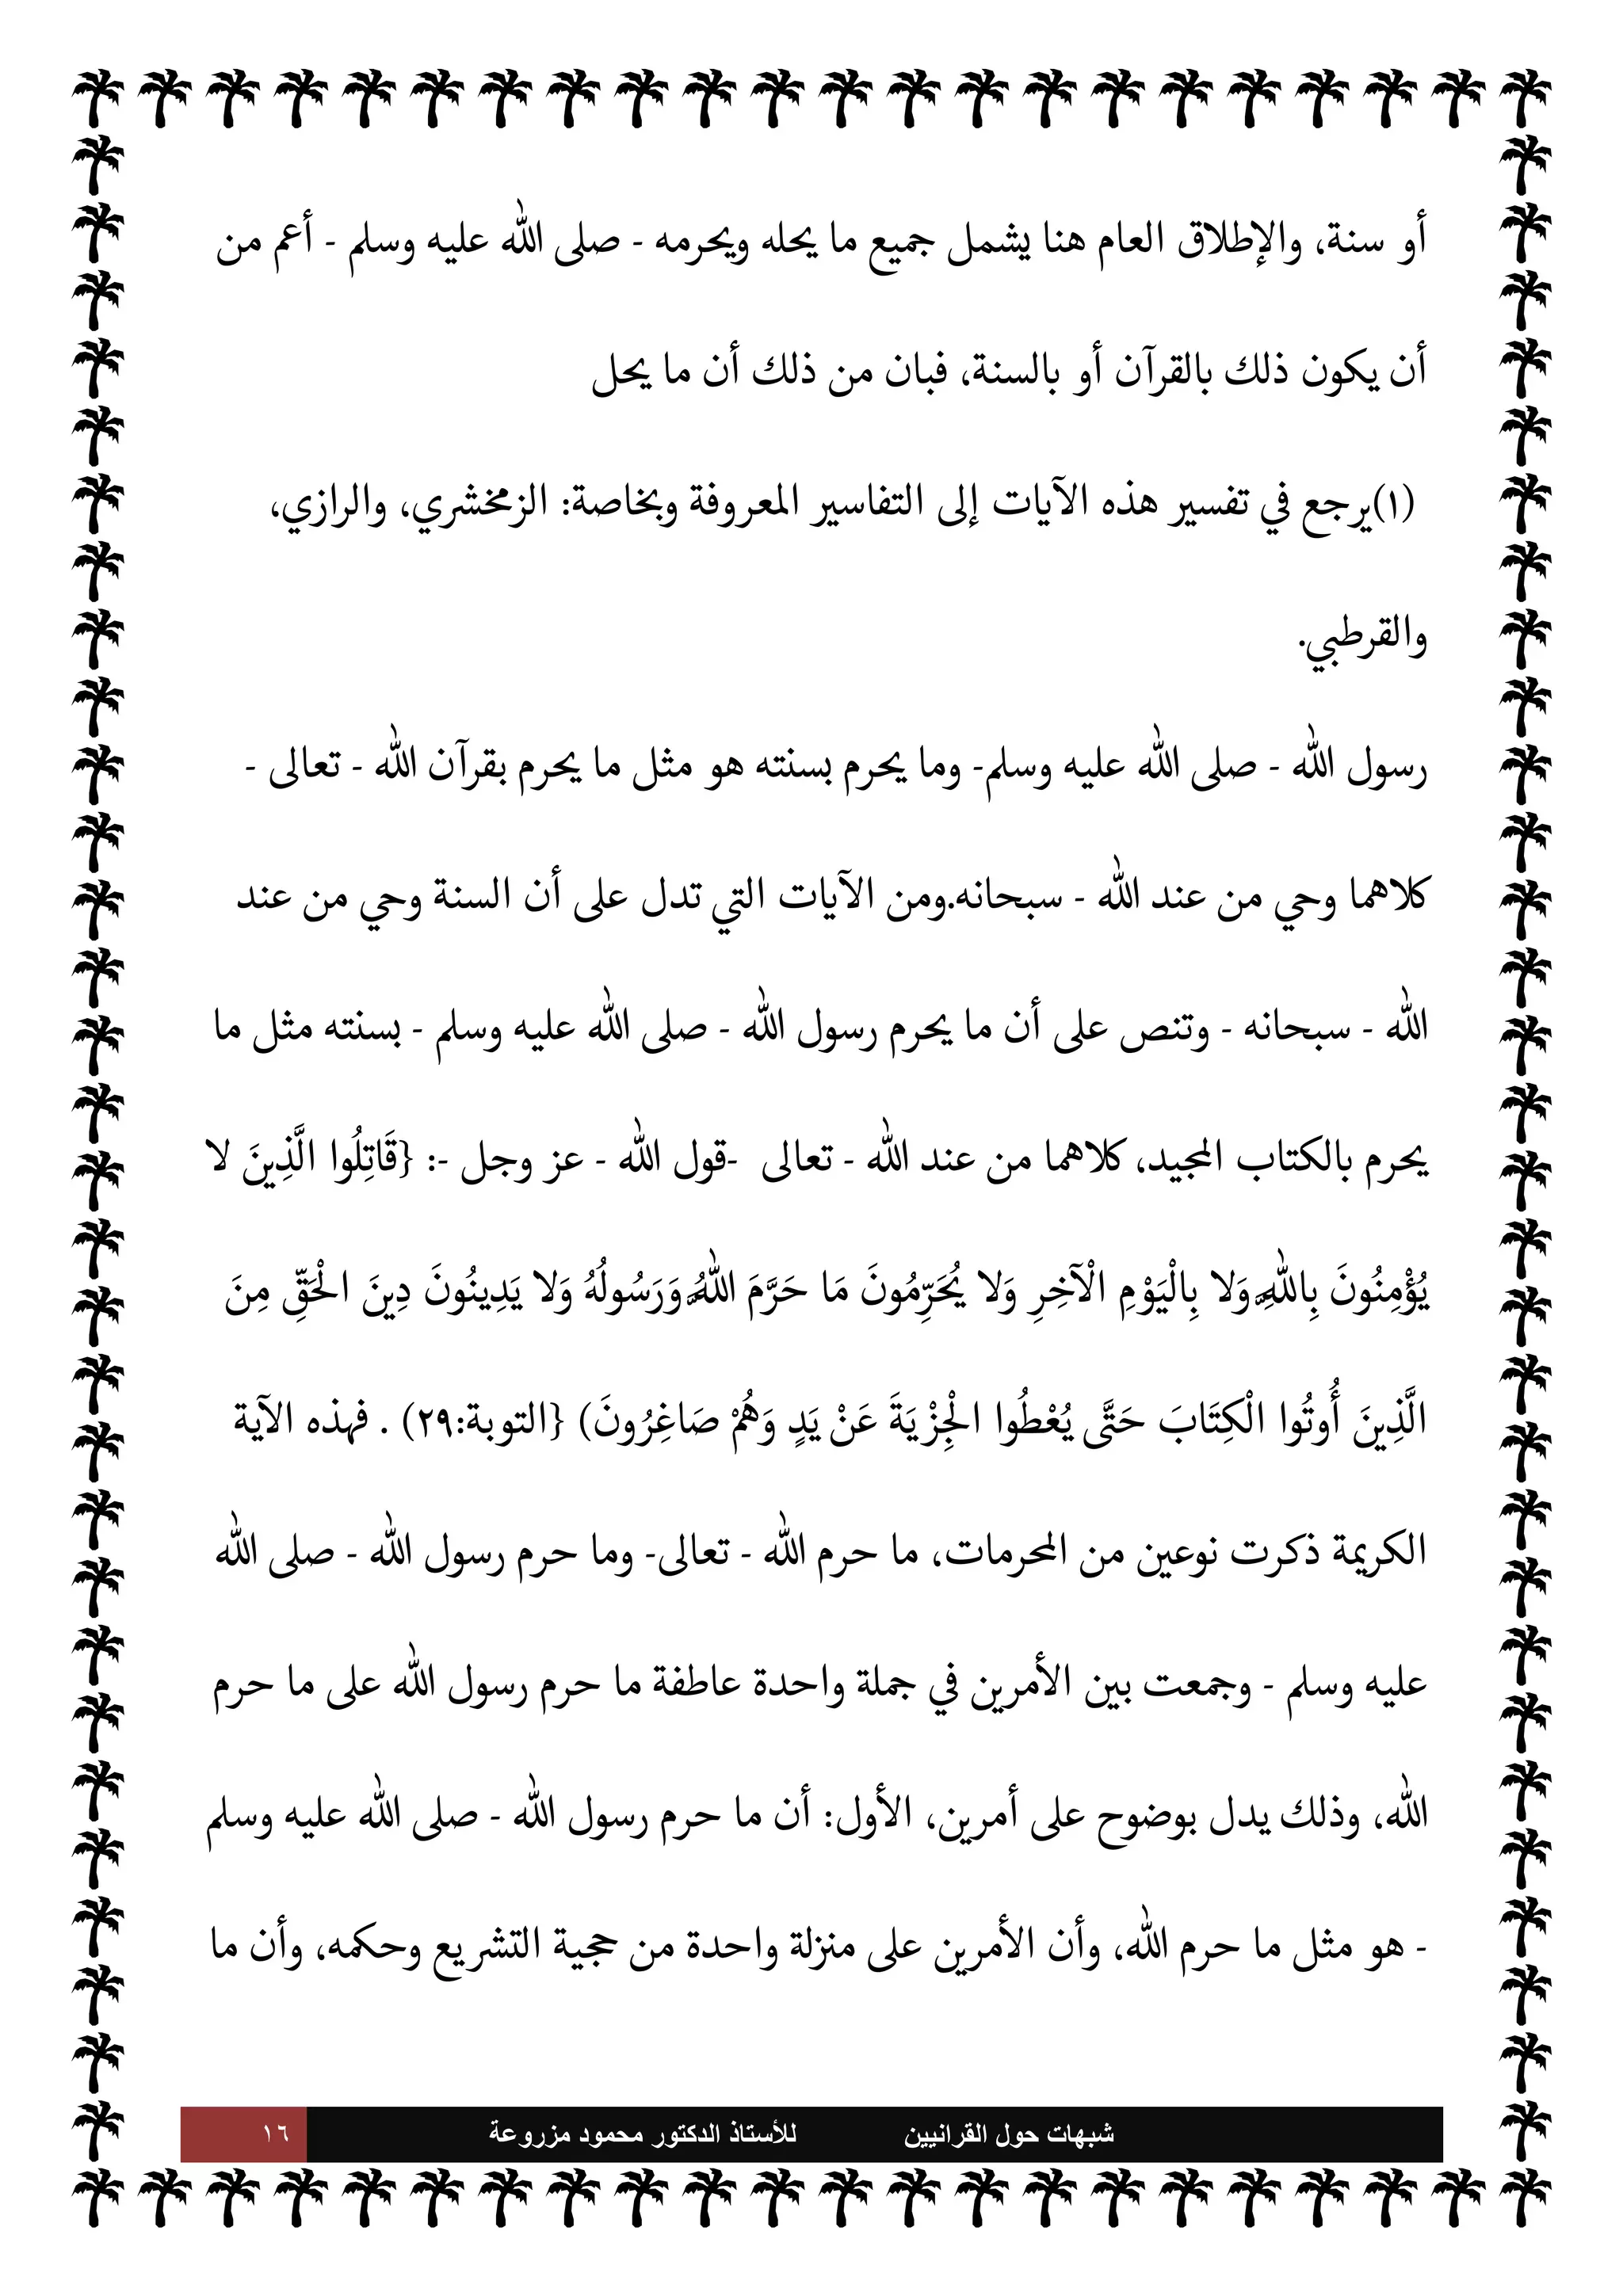 أو سنة، والإطلاق العام هنا يشمل جميع ما يحله ويحرمه - صلى الله عليه وسلم - أعم من
أن يكون ذلك بالقرآن أو بالسنة، فبان من ذلك أن ما يحل
(١)يرجع في تفسير هذه الآيات إلى التفاسير المعروفة وبخاصة: الزمخشري، والرازي،
والقرطبي.
رسول الله - صلى الله عليه وسلم- وما يحرم بسنته هو مثل ما يحرم بقرآن الله - تعالى -
كلاهما وحي من عند الله - سبحانه.ومن الآيات التي تدل على أن السنة وحي من عند
الله - سبحانه - وتنص على أن ما يحرم رسول الله - صلى الله عليه وسلم - بسنته مثل ما
يحرم بالكتاب المجيد، كلاهما من عند الله - تعالى -قول الله - عز وجل -: {قَاتِلُوا الَّذِينَ لا
يُؤْمِنُونَ بِاللهِ وَلا بِالْيَوْمِ الْآخِرِ وَلا يُحَرِّمُونَ مَا حَرَّمَ اللهُ وَرَسُولُهُ وَلا يَدِينُونَ دِينَ الْحَقِّ مِنَ
الَّذِينَ أُوتُوا الْكِتَابَ حَتَّى يُعْطُوا الْجِزْيَةَ عَنْ يَدٍ وَهُمْ صَاغِرُونَ) {التوبة:٢٩) . فهذه الآية
الكريمة ذكرت نوعين من المحرمات، ما حرم الله - تعالى- وما حرم رسول الله - صلى الله
عليه وسلم - وجمعت بين الأمرين في جملة واحدة عاطفة ما حرم رسول الله على ما حرم
الله، وذلك يدل بوضوح على أمرين، الأول: أن ما حرم رسول الله - صلى الله عليه وسلم
- هو مثل ما حرم الله، وأن الأمرين على منزلة واحدة من حجية التشريع وحكمه، وأن ما
شبهات حول القرانيين للأستاذ الدكتور محمود مزروعة ١٦